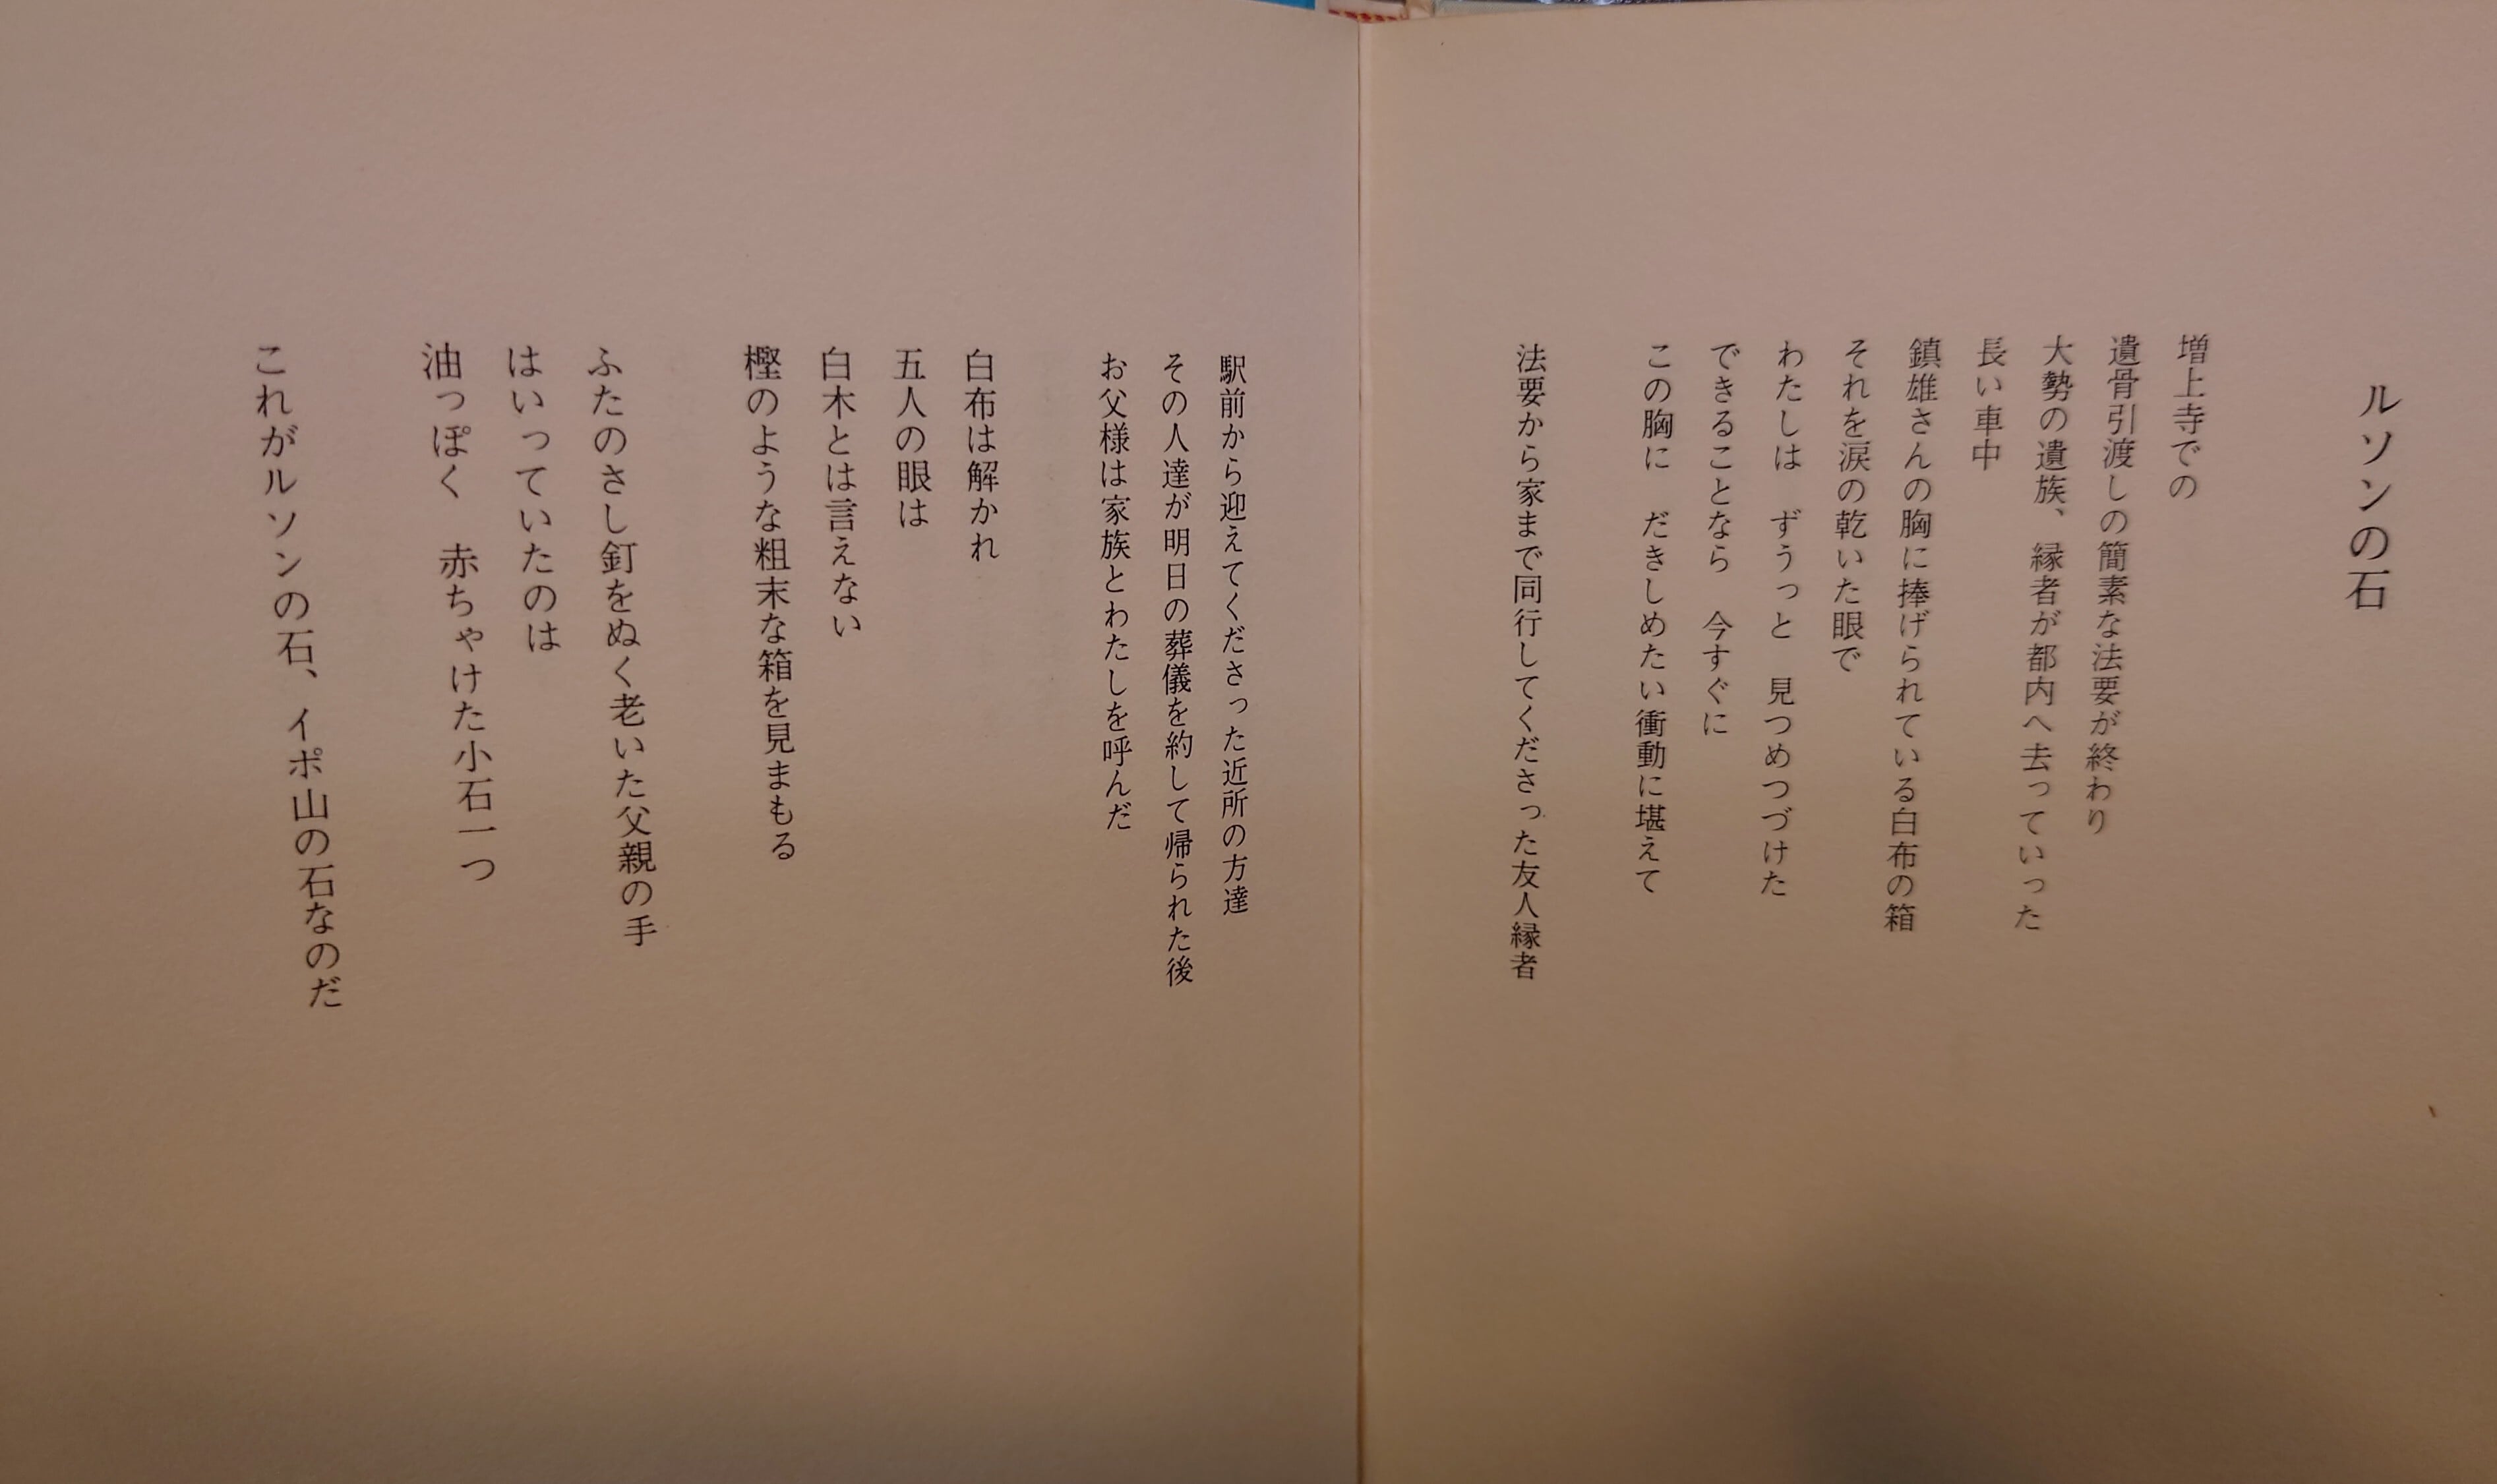 ルソンの石
増上寺での
遺骨引渡しの簡素な法要が終わり
大勢の遺族、縁者が都内へ去っていった
長い車中
鎮雄さんの胸に捧げられている白布の箱
それを涙の乾いた眼で
わたしは　ずうっと　見つめつづけた
できることなら　今すぐに
この胸に　だきしめたい衝動に堪えて
法要から家まで同行してくださった友人縁者
駅前から迎えてくださった近所の方達
その人達が明日の葬儀を約して帰られた後
お父様は家族とわたしを呼んだ
白布は解かれ
五人の眼は
白木とは言えない
樫のような粗末な箱を見まもる
ふたのさし釘をぬく老いた父親の手
はいっていたのは
油っぽく　赤ちゃけた小石一つ
これがルソンの石、イポ山の石なのだ